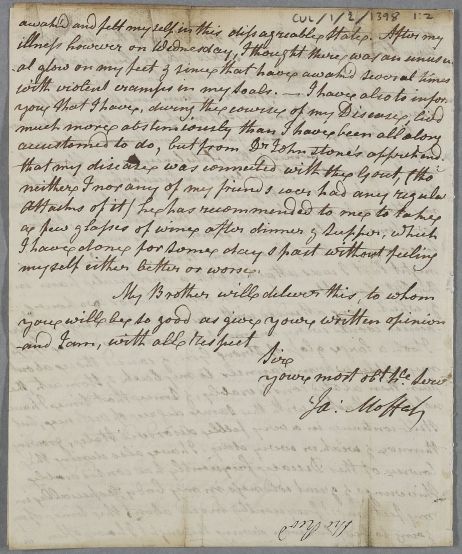 CUL/1/2/1398 1:2
awak'd and felt myself in this disagreable state. After my
illness however on Wednesday, I thought there was an unusu-
al glow on my feet & since that have awak'd several times
with violent cramps in my soals. — I have also to inform
you that I have, during the course of my Disease, lived
much more abstemiously than I have been all along
accustomed to do, but from Dr Johnstone's apprehend
that my disease was connected with the Gout, (tho'
neither I nor any of my friends ever had any regular
Attacks of it) he has recommended to me to take
a few glasses of wine after dinner & supper, which
I have done for some days past without feeling
myself either better or worse.
My Brother will deliver this, to whom
you will be so good as give your written opinion
and I am, with all respect
Sir
your most obt Hle Servt
Ja: Moffat